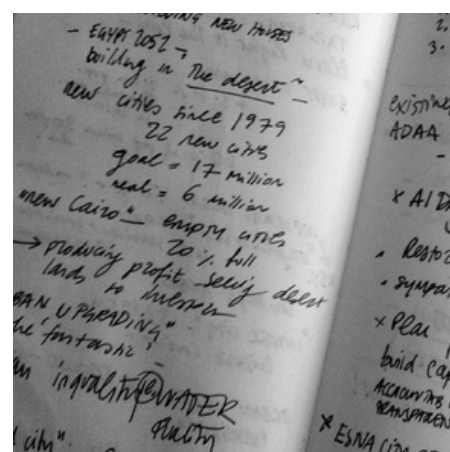 NEW HOUSES
- EGYPT 2052 →
building in "The desert" -
new cities since 1979
22 new cities
goal = 17 million
real = 6 million
"new Cairo" - empty cities
20 % full
→ producing profit selling desert
lands to investors
UPGRADING"
fantastic'
inquality @ WATER
Quality
city".
2.
3.
existing
ADAA
-
x AI D
• Resto
• sympa
x Plan
build cap
ACCOUNTAB
TRANSPAREN
x ESNA city